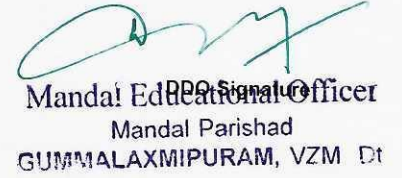 DDO Signature
Mandal Educational Officer
Mandal Parishad
GUMMALAXMIPURAM, VZM Dt